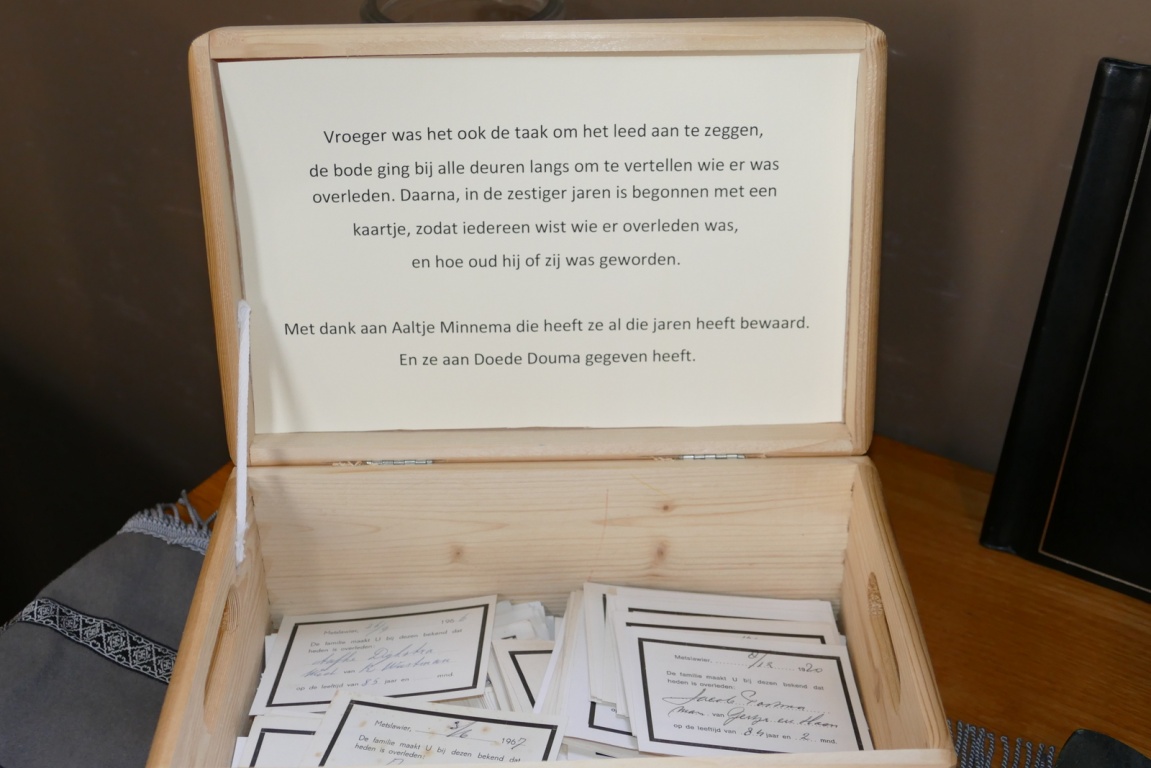 Vroeger was het ook de taak om het leed aan te zeggen,
de bode ging bij alle deuren langs om te vertellen wie er was
overleden. Daarna, in de zestiger jaren is begonnen met een
kaartje, zodat iedereen wist wie er overleden was,
en hoe oud hij of zij was geworden.
Met dank aan Aaltje Minnema die heeft ze al die jaren heeft bewaard.
En ze aan Doede Douma gegeven heeft.
Metslawier, 196
De familie maakt U bij dezen bekend dat
heden is overleden:
van
op de leeftijd van 85 jaar en mnd.
Metslawier, 1967
De familie maakt U bij dezen bekend dat
heden is overleden:
Metslawier, 19
De familie maakt U bij dezen bekend dat
heden is overleden:
Jacob
man van
op de leeftijd van 84 jaar en 2 mnd.